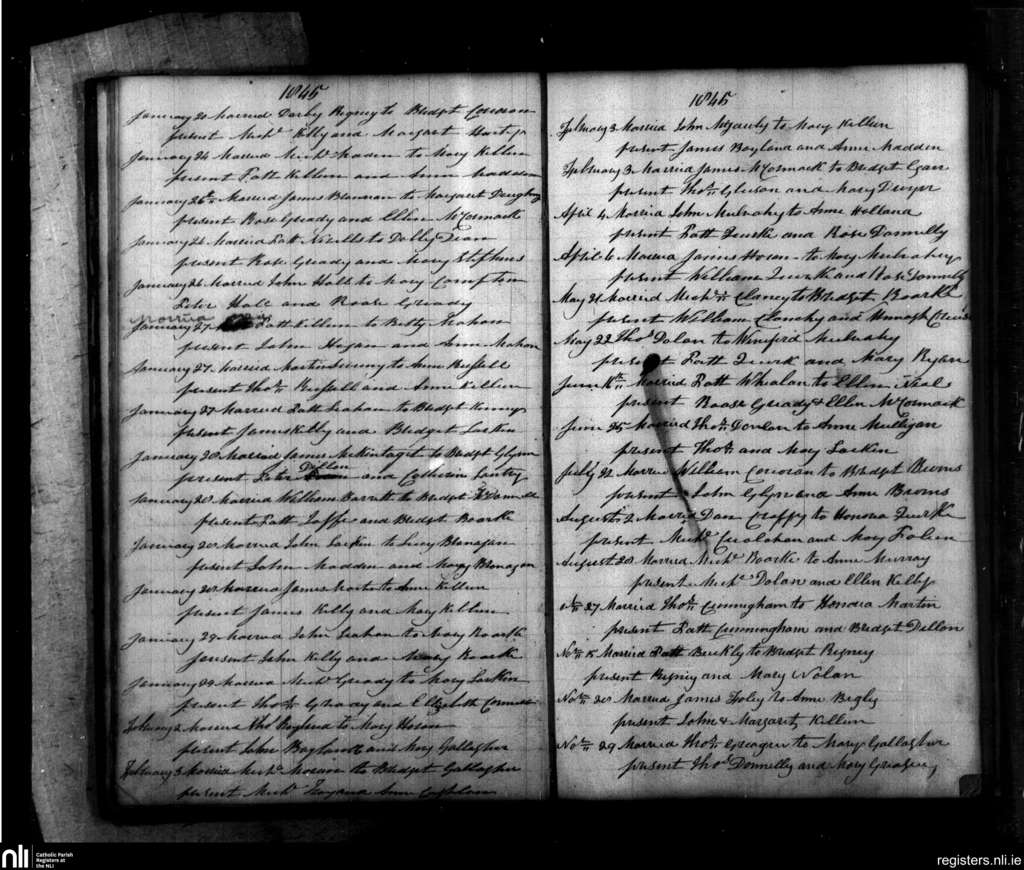 1845
January 20 Married Darby Regney to Bridget Corcoran
present Mich.l Kelly and Margart
January 24 Married Mich.l Maden to Mary Killin
present Patt Killin and Anne Madden
January 26th Married James Brennan to Margaret
present Rose Gready and Ellen McCormack
January 26 Married Patt Nicolls to Dolly Dean
present Rose Gready and Mary Stephens
January 26 Married John Hall to Mary Compton
Peter Hall and Roase Gready
Married
January 27 Patt Killin to Betty Mahon
present John Hogan and Anne Mahon
January 27 Married Martin to Anne Russell
present Tho.s Russell and Anne Killin
January 27 Married Patt Leahan to Bridget Kenny
present James Kelly and Bridget Larkin
January 28 Married James McKintaget to Bridget Glynn
Dillon
present Peter and Catherin Lantry
January 28 Married William Barrett to Bridget
present Patt Joffe and Bridget Roarke
January 28 Married John Larkin to Lucy Branagan
present John Madden and Mary Branagan
January 28 Married James to Anne Killin
present James Kelly and Mary Killin
January 28 Married John Leahan to Mary Roarke
present John Kelly and Mary Roarke
January 29 Married Mich.l Gready to Mary Larkin
present Tho.s Gready and Elizabeth
February 2 Married Tho.s to Mary Horan
present John and Mary Gallagher
February 3 Married Mich.l the Bridget Gallagher
present Mich.l and Anne
1845
February 3 Married John to Mary Killin
present James Boyland and Anne Madden
February 3 Married James McCormack to Bridget Egan
present Tho.s Gleeson and Mary Dwyer
April 4 Married John Mulvahy to Anne Holland
present Patt Quirke and Rose Donnelly
April 6 Married James Horan to Mary Mulvahy
present William Quirk and Rose Donnelly
May 21 Married Mich.l Clancy to Bridget Roarke
present William Clanchy and
May 22 Tho.s Dolan to Winifred Mulvahy
present Patt Quirk and Mary Ryan
June 16th Married Patt Whealan to Ellen
present Roase Gready & Ellen McCormack
June 25 Married Tho.s Donlan to Anne Mulligan
present Tho.s and Mary Larkin
July 22 Married William Corcoran to Bridget Burns
present John Glynn and Anne Burns
August 2 Married Dan to Honora Quirke
present Mich.l and Mary
August 20 Married Mich.l Roarke to Anne Murray
present Mich.l Dolan and Ellen Kelly
27 Married Tho.s Cunningham to Honora Martin
present Patt Cunningham and Bridget Dillon
Nov 15 Married Patt Buckly to Bridget Regney
present Regney and Mary Nolan
Nov 20 Married James Foley to Anne Begly
present John & Margaret Killin
Nov 29 Married Tho.s Greager to Mary Gallagher
present Tho.s Donnelly and Mary
nli
Catholic Parish
Registers at
the NLI
registers.nli.ie